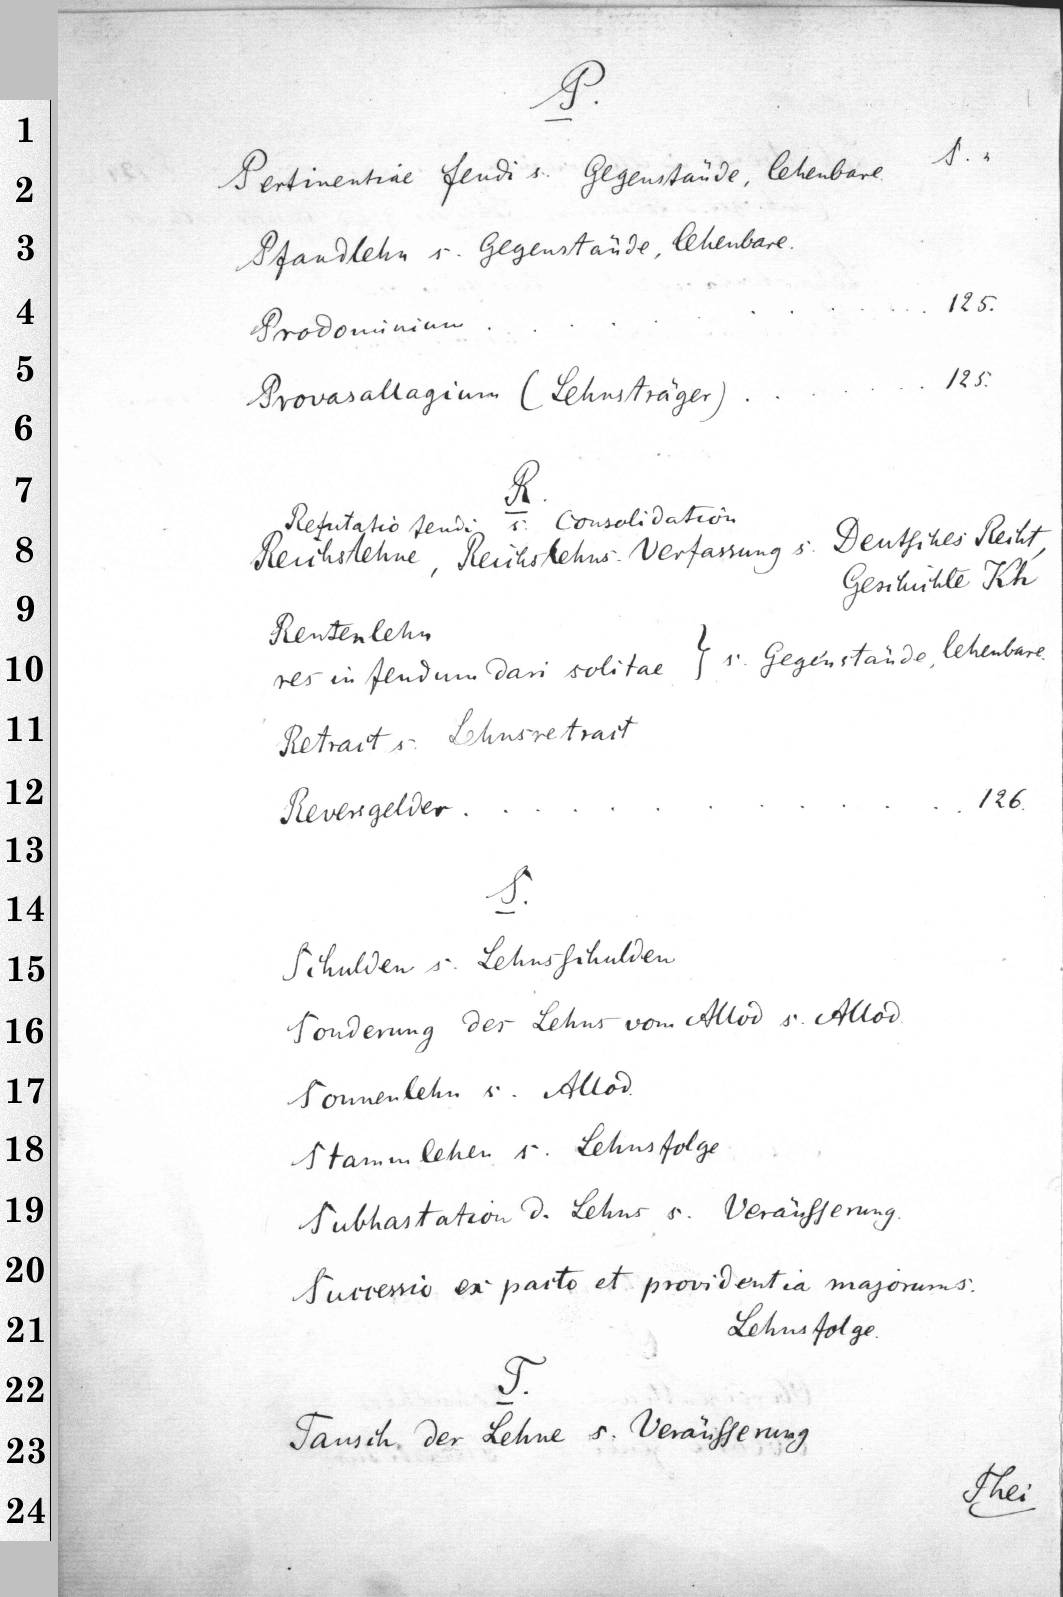 P.
Pertinentiae feudi s. Gegenstände, lehenbare. S. "
Pfandlehn s. Gegenstände, lehenbare.
Prodominium . . . . . . . . . . 125.
Provasallagium (Lehnsträger) . . . . . . 125.
R.
Refutatio feudi s. Consolidation
Reichslehne, Reichslehns-Verfassung s. Deutsches Recht,
Geschichte
Rentenlehn
res in feudum dari solitae } s. Gegenstände, lehenbare.
Retract s. Lehnsretract
Reversgelder . . . . . . . . . . . 126.
S.
Schulden s. Lehnsschulden
Sonderung des Lehns vom Allod s. Allod.
Sonnenlehn s. Allod.
Stammlehen s. Lehnsfolge
Subhastation d. Lehns s. Veräusserung.
Successio ex pacto et providentia majorum s.
Lehnsfolge.
T.
Tausch der Lehne s. Veräusserung
Thei
1
2
3
4
5
6
7
8
9
10
11
12
13
14
15
16
17
18
19
20
21
22
23
24